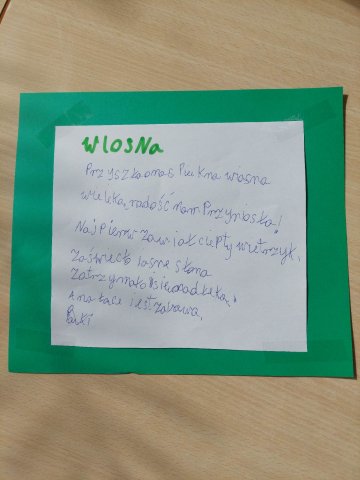 WIOSNa
Przyszła do nas Piękna wiosna
wielką radość nam Przyniosła!
Naj Pierw zawiał ciepły wietrzyk,
Zaświeciło jasne słona
Zatrzymało się nad łąką,
A na łące jest zabawa,